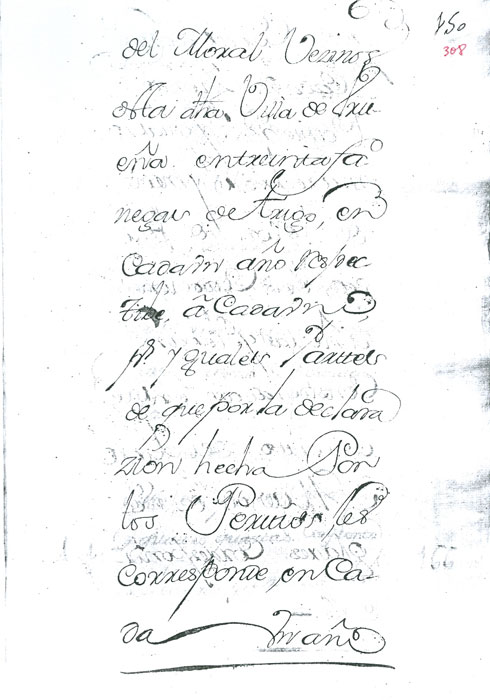 150
308
del Moral Vezinos
desta dha Villa de Yru
eña en treinta fa
negas de trigo, en
Cada Un año respec
tibe, a Cada Uno
pr Yguales Partes
de que por la declara
zion hecha Por
los Peritos les
Corresponde, en Ca-
da Un año